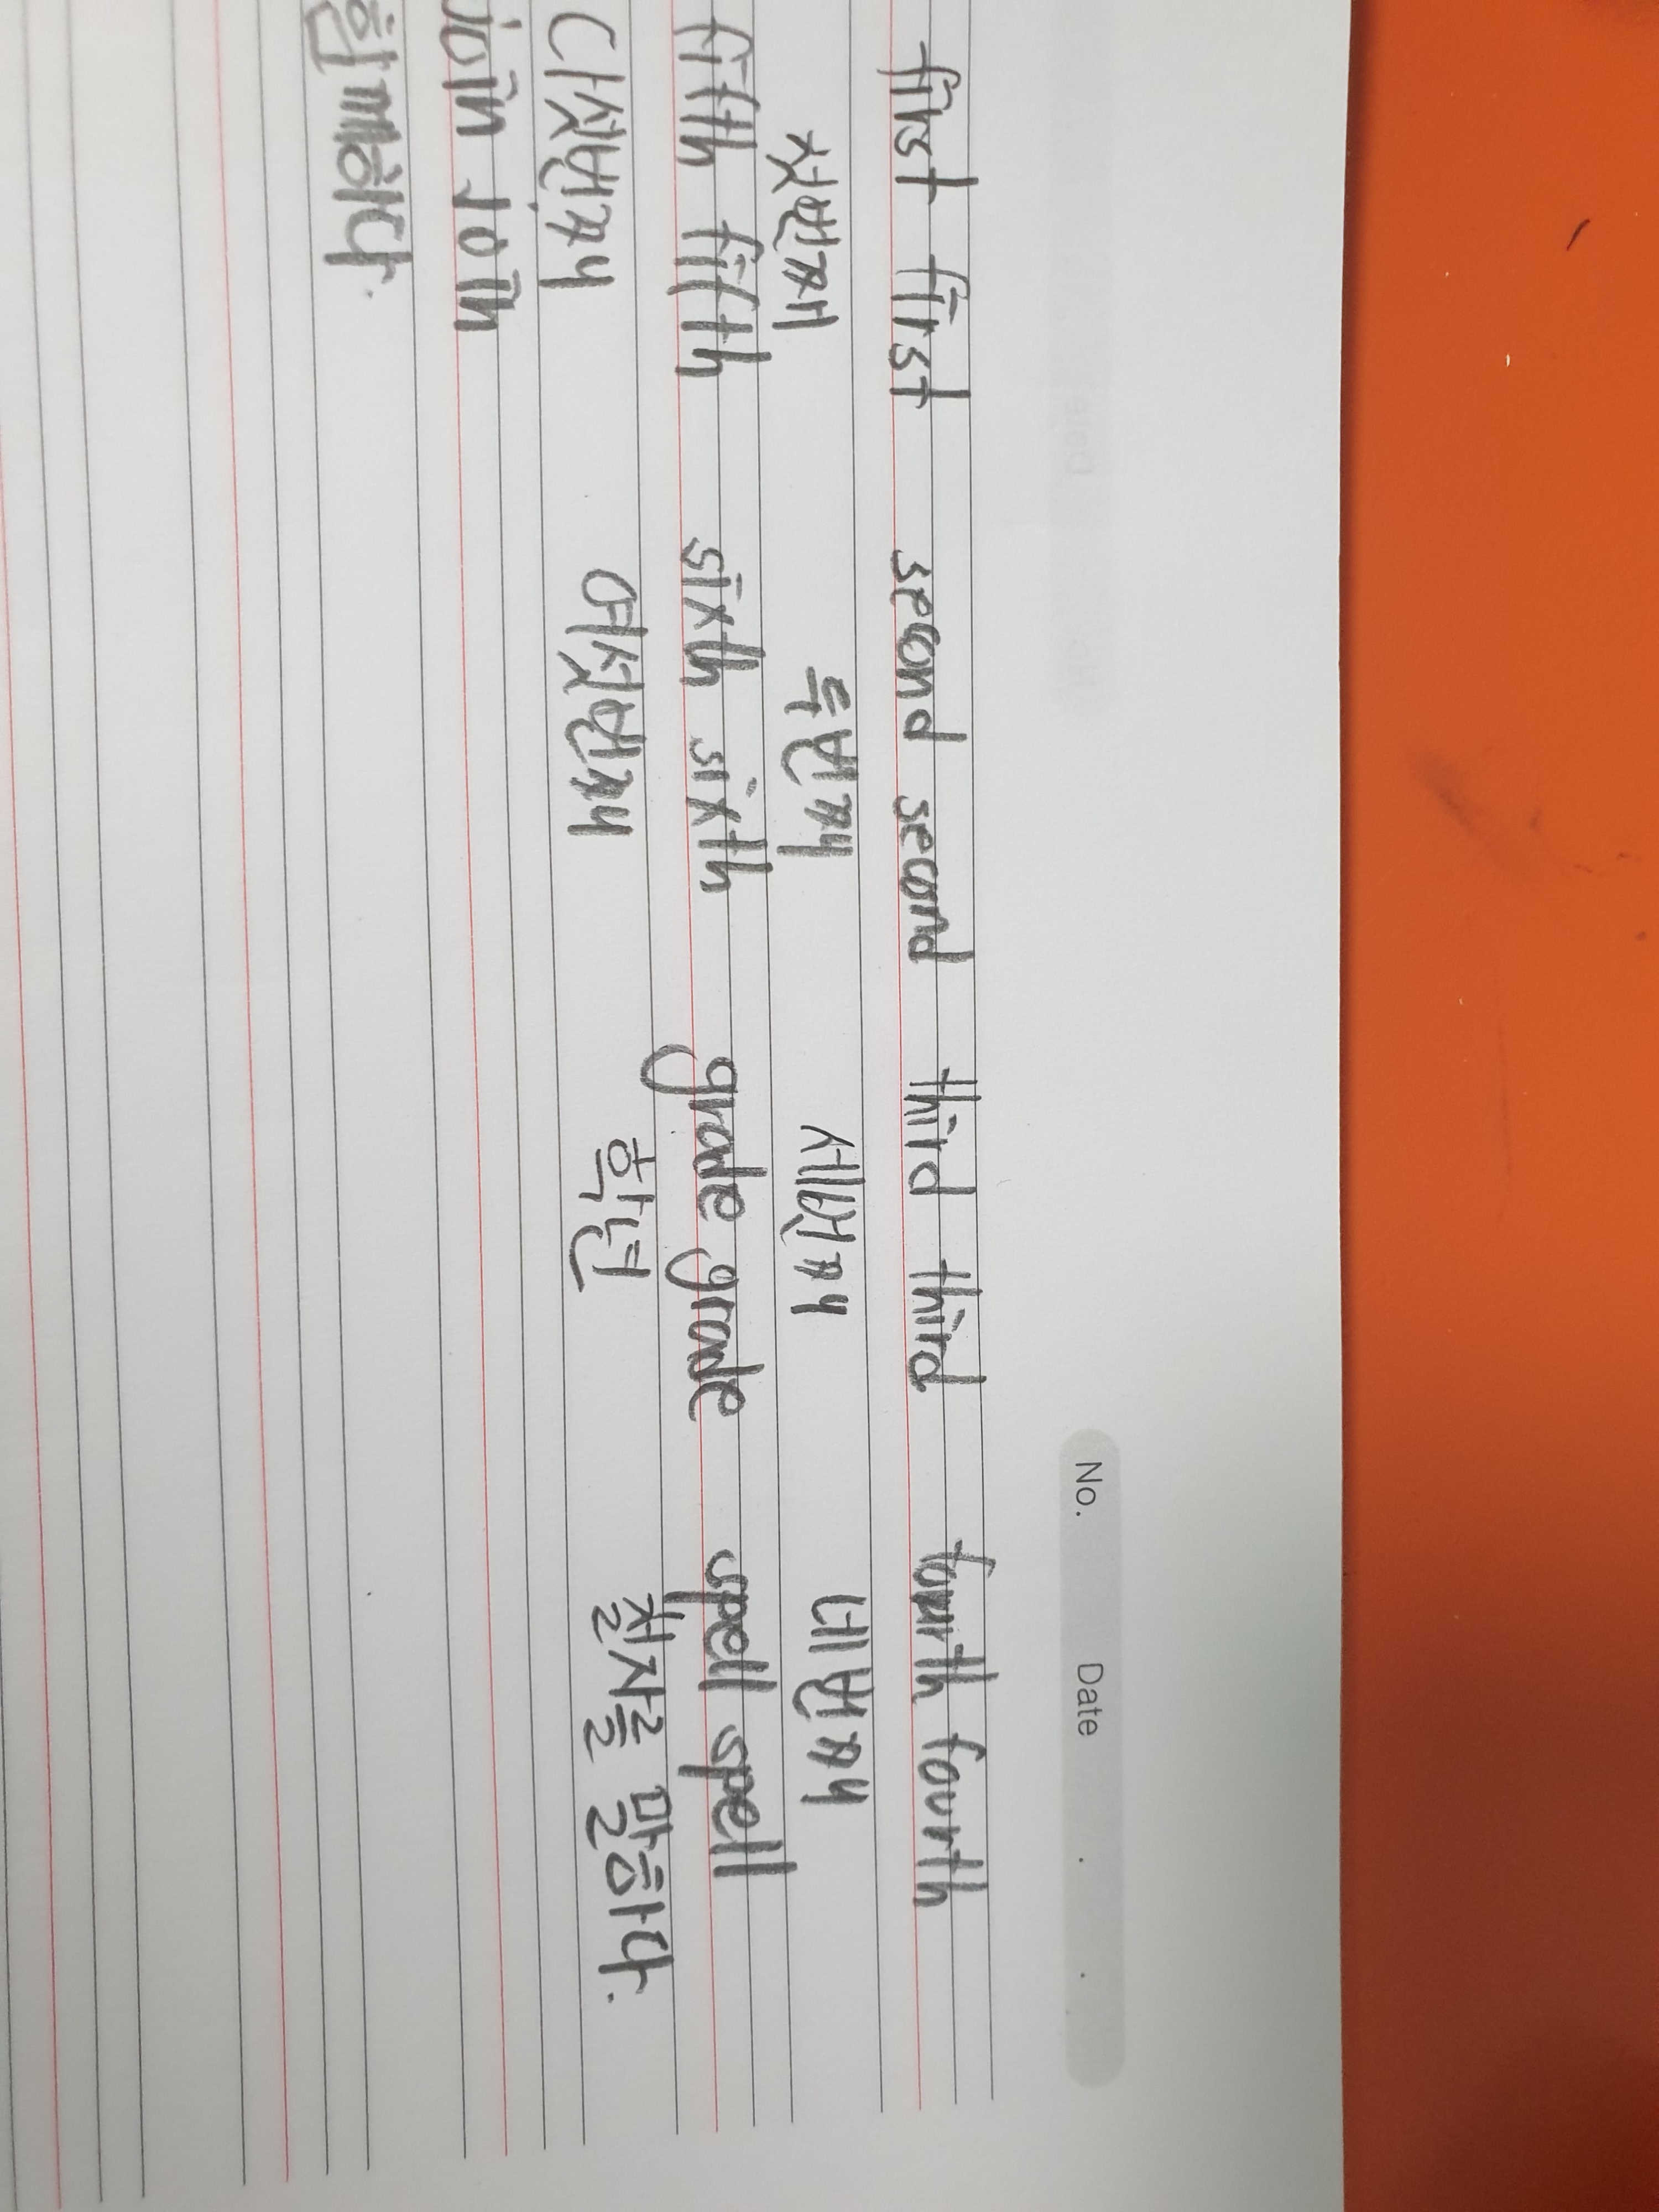 No. Date . .
first first second second third third fourth fourth
첫번째 두번째 세번째 네번째
fifth fifth sixth sixth grade grade spell spell
다섯번째 여섯번째 학년 철자를 말하다.
join join
함께하다.